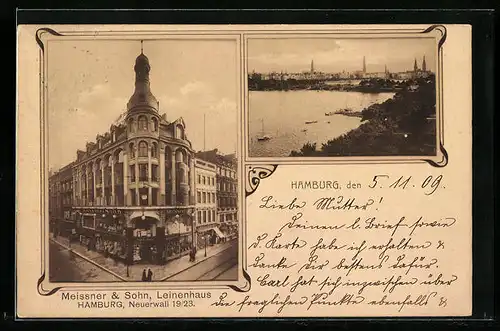 Meissner & Sohn, Leinenhaus
HAMBURG, Neuerwall 19/23.
HAMBURG, den 5.11.09.
Liebe Mutter!
Deinen l. Brief sowie
d. Karte habe ich erhalten &
danke Dir bestens dafür.
Carl hat sich inzwischen über
die fraglichen Punkte ebenfalls &